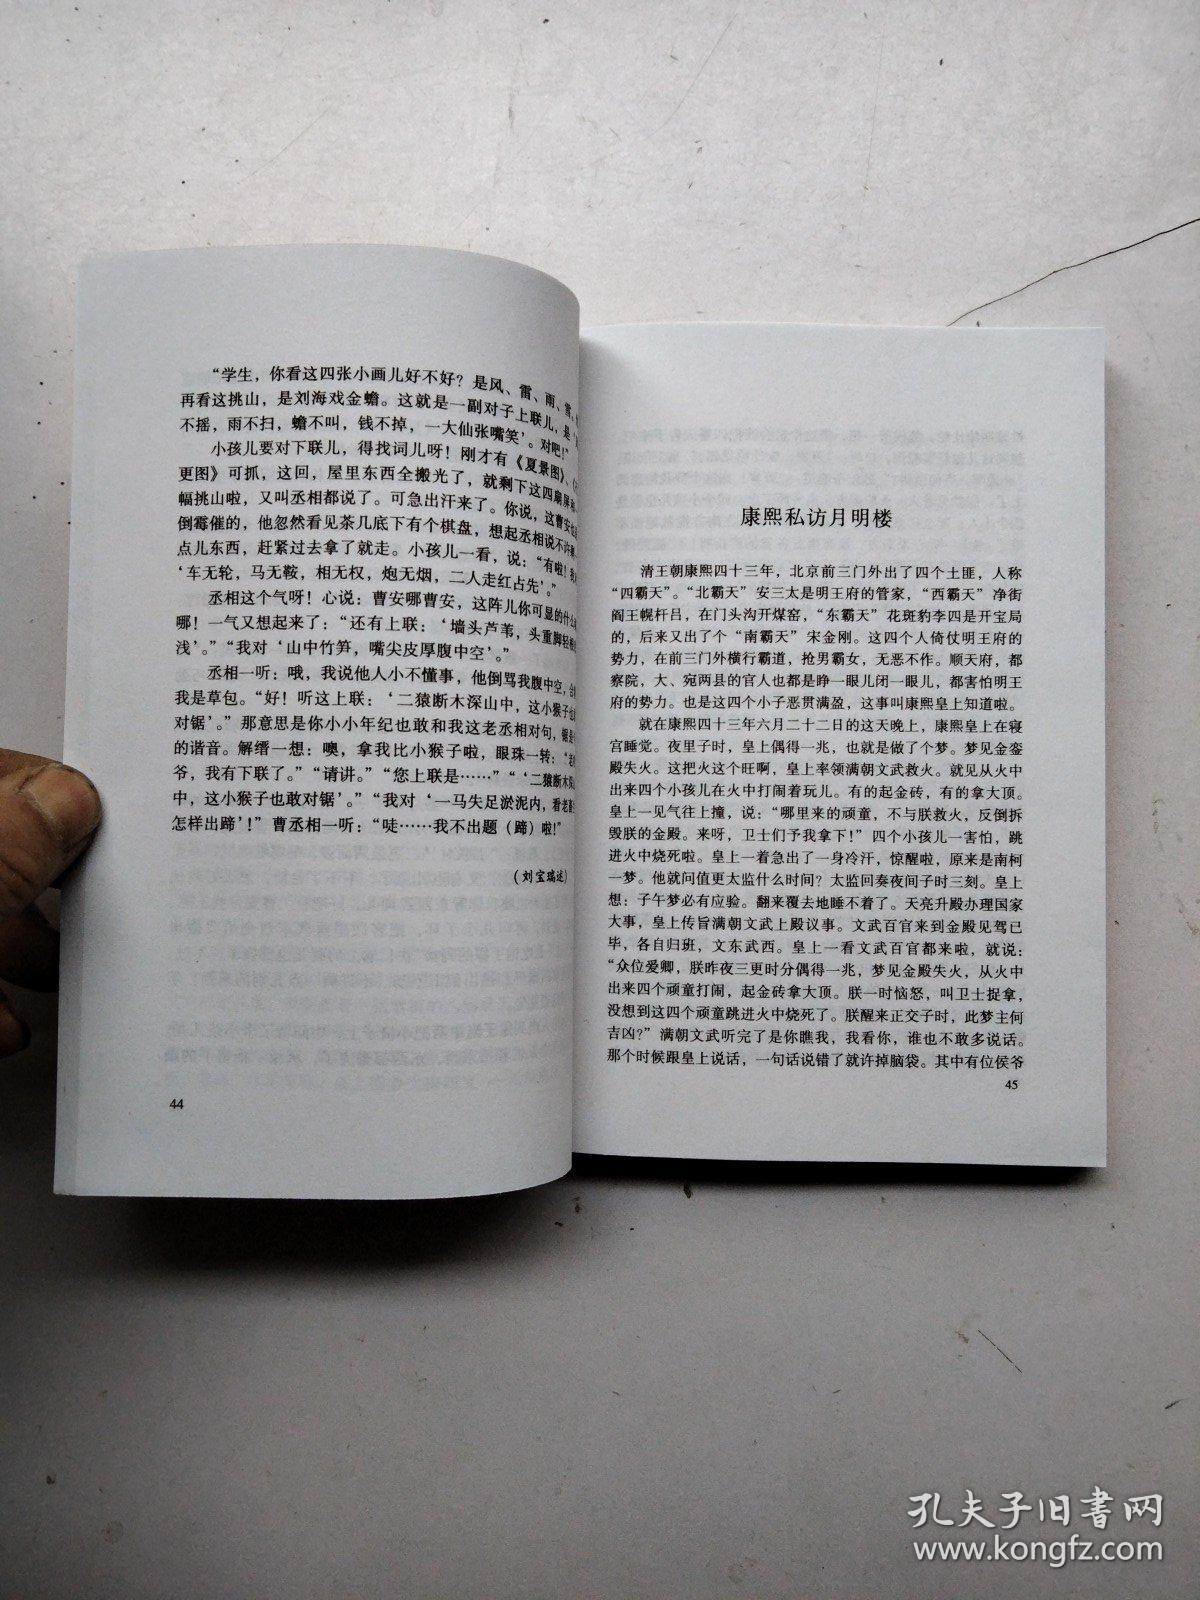 “学生，你看这四张小画儿好不好？是风、雷、雨、雪。
再看这挑山，是刘海戏金蟾。这就是一副对子上联儿，是
不摇，雨不扫，蟾不叫，钱不掉，一大仙张嘴笑’。对吧！”
小孩儿要对下联儿，得找词儿呀！刚才有《夏景图》、
更图》可抓，这回，屋里东西全搬光了，就剩下这四扇屏
幅挑山啦，又叫丞相都说了。可急出汗来了。你说，这曹安也
倒霉催的，他忽然看见茶几底下有个棋盘，想起丞相说不许
点儿东西，赶紧过去拿了就走。小孩儿一看，说：“有啦！我
‘车无轮，马无鞍，相无权，炮无烟，二人走红占先’。”
丞相这个气呀！心说：曹安哪曹安，这阵儿你可显的什么
哪！一气又想起来了：“还有上联：‘墙头芦苇，头重脚轻根
浅’。”“我对‘山中竹笋，嘴尖皮厚腹中空’。”
丞相一听：哦，我说他人小不懂事，他倒骂我腹中空，合
我是草包。“好！听这上联：‘二猿断木深山中，这小猴子也
对锯’。”那意思是你小小年纪也敢和我这老丞相对句，锯是
的谐音。解缙一想：噢，拿我比小猴子啦，眼珠一转：“老
爷，我有下联了。”“请讲。”“您上联是……”“‘二猿断木深
中，这小猴子也敢对锯’。”“我对‘一马失足淤泥内，看老畜
怎样出蹄’！”曹丞相一听：“哇……我不出题（蹄）啦！”
（刘宝瑞述）
44
康熙私访月明楼
清王朝康熙四十三年，北京前三门外出了四个土匪，人称
“四霸天”。“北霸天”安三太是明王府的管家，“西霸天”净街
阎王幌杆吕，在门头沟开煤窑，“东霸天”花斑豹李四是开宝局
的，后来又出了个“南霸天”宋金刚。这四个人倚仗明王府的
势力，在前三门外横行霸道，抢男霸女，无恶不作。顺天府，都
察院，大、宛两县的官人也都是睁一眼儿闭一眼儿，都害怕明王
府的势力。也是这四个小子恶贯满盈，这事叫康熙皇上知道啦。
就在康熙四十三年六月二十二日的这天晚上，康熙皇上在寝
宫睡觉。夜里子时，皇上偶得一兆，也就是做了个梦。梦见金銮
殿失火。这把火这个旺啊，皇上率领满朝文武救火。就见从火中
出来四个小孩儿在火中打闹着玩儿。有的起金砖，有的拿大顶。
皇上一见气往上撞，说：“哪里来的顽童，不与朕救火，反倒拆
毁朕的金殿。来呀，卫士们予我拿下！”四个小孩儿一害怕，跳
进火中烧死啦。皇上一着急出了一身冷汗，惊醒啦，原来是南柯
一梦。他就问值更太监什么时间？太监回奏夜间子时三刻。皇上
想：子午梦必有应验。翻来覆去地睡不着了。天亮升殿办理国家
大事，皇上传旨满朝文武上殿议事。文武百官来到金殿见驾已
毕，各自归班，文东武西。皇上一看文武百官都来啦，就说：
“众位爱卿，朕昨夜三更时分偶得一兆，梦见金殿失火，从火中
出来四个顽童打闹，起金砖拿大顶。朕一时恼怒，叫卫士捉拿，
没想到这四个顽童跳进火中烧死了。朕醒来正交子时，此梦主何
吉凶？”满朝文武听完了是你瞧我，我看你，谁也不敢多说话。
那个时候跟皇上说话，一句话说错了就许掉脑袋。其中有位侯爷
45
孔夫子旧书网
www.kongfz.com